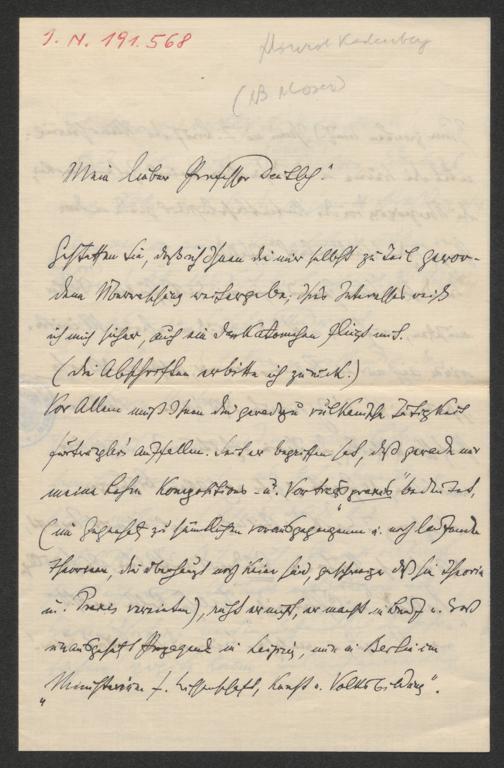 I. N. 191.568
(NB Moser)
Mein lieber Professor Deutsch!
Gestatten Sie, daß ich Ihnen die mir selbst zu Teil gewor-
dene Überraschung weitergebe; Ihres Interesses weiß
ich mich sicher, auch wie der
(die Abschriften erbitte ich zurück.)
Vor Allem muß Ihnen die geradezu vulkanische Tätigkeit
Furtwänglers auffallen. Seit er begriffen hat, daß gerade nur
meine Lehre Kompositions- u. Vortrags„praxis" bedeutet,
(im Gegensatz zu sämtlichen vorausgegangenen u. noch laufenden
Theorien, die überhaupt noch keine sind, geschweige daß sie Theorie
u. Praxis vereinten), ruht er nicht, er macht in Brief u. Wort
unausgesetzt Propaganda in Leipzig, nun in Berlin im
„Ministerium f. Wissenschaft, Kunst u. Volksbildung".